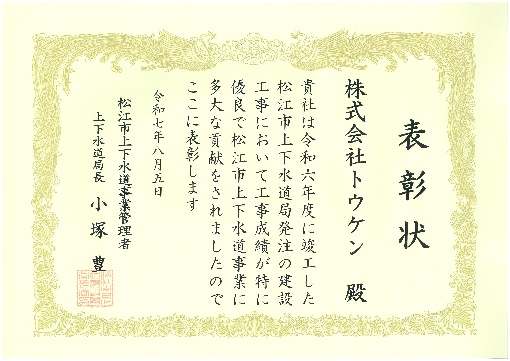 表彰状
株式会社トウケン 殿
貴社は令和六年度に竣工した
松江市上下水道局発注の建設
工事において工事成績が特に
優良で松江市上下水道事業に
多大な貢献をされましたので
ここに表彰します
令和七年八月五日
松江市上下水道事業管理者
上下水道局長 小塚 豊